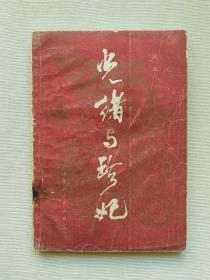 光绪与珍妃